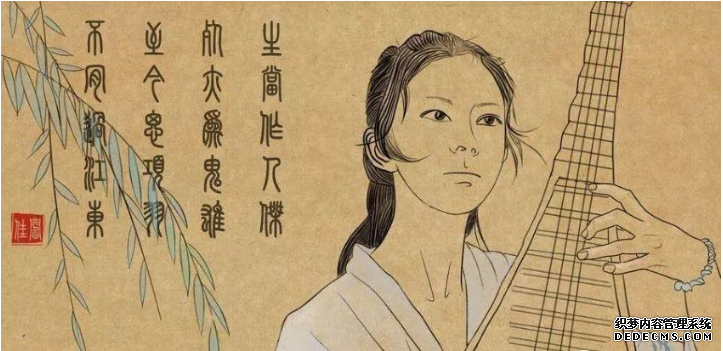 生當作人傑
死亦爲鬼雄
至今思項羽
不肎過江東
织梦内容管理系统
DEDECMS.COM